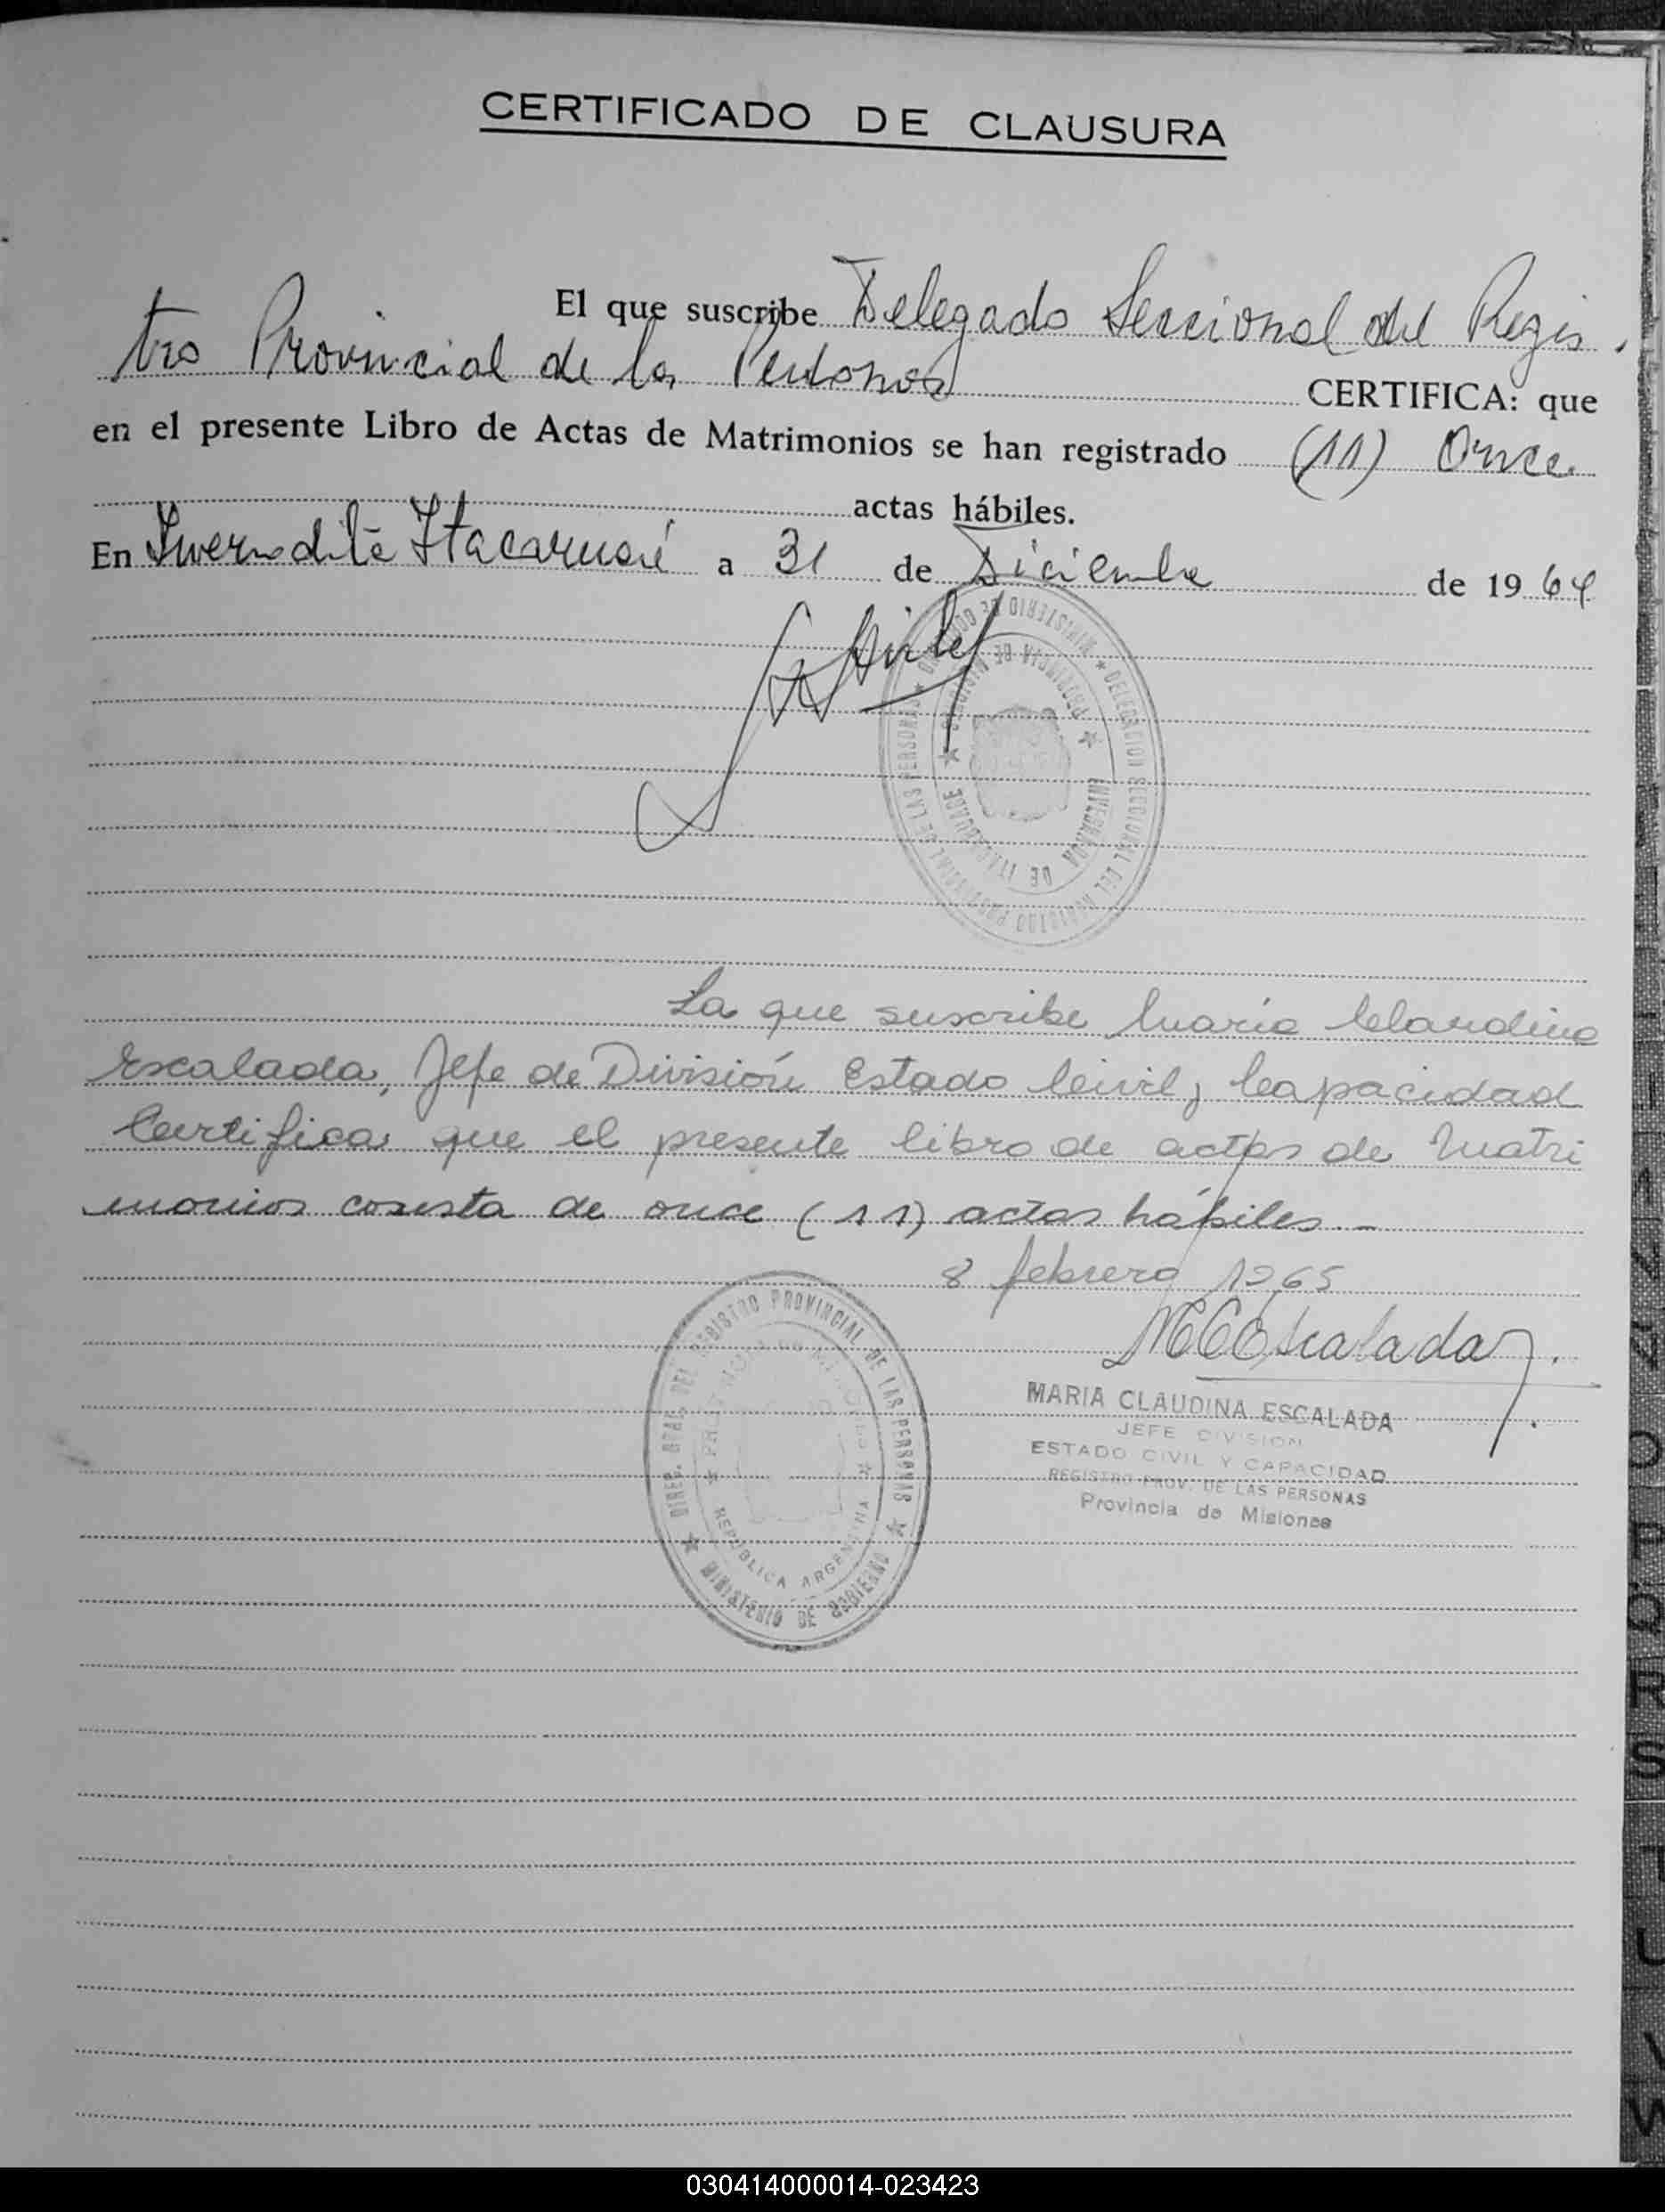 CERTIFICADO DE CLAUSURA
El que suscribe Delegado Seccional del Regis
tro Provincial de las Personas CERTIFICA: que
en el presente Libro de Actas de Matrimonios se han registrado (11) Once
actas hábiles.
En Itacaruaré a 31 de Diciembre de 1964
MINISTERIO DE GOBIERNO * DELEGACION SECCIONAL DEL REGISTRO PROVINCIAL DE LAS PERSONAS *
PROVINCIA DE MISIONES * ENVERNADA DE ITACARUARE *
La que suscribe Maria Claudina
Escalada, Jefe de División Estado Civil y Capacidad
Certifica que el presente libro de actas de Matri
monios consta de once (11) actas hábiles.-
8 febrero 1965
MCEscalada
MARIA CLAUDINA ESCALADA
JEFE DIVISION
ESTADO CIVIL Y CAPACIDAD
REGISTRO PROV. DE LAS PERSONAS
Provincia de Misiones
DIREC. GRAL. DEL REGISTRO PROVINCIAL DE LAS PERSONAS
MINISTERIO DE GOBIERNO
PROVINCIA DE MISIONES
REPUBLICA ARGENTINA
030414000014-023423